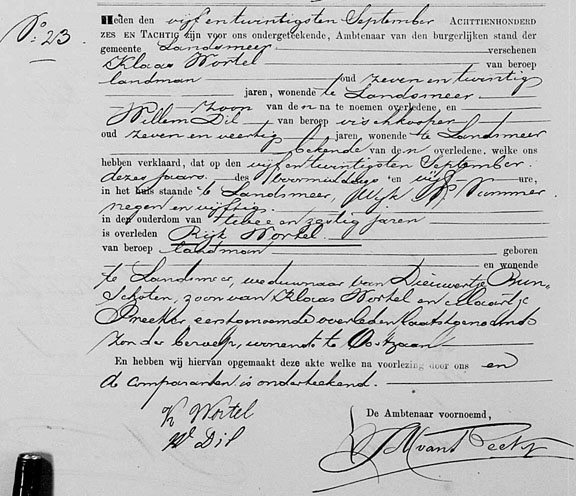 No. 23.
Heden den vijf en twintigsten September ACHTTIENHONDERD
ZES EN TACHTIG zijn voor ons ondergeteekende, Ambtenaar van den burgerlijken stand der
gemeente Landsmeer verschenen
Klaas Wortel van beroep
landman oud zeven en twintig
jaren, wonende te Landsmeer
zoon van den na te noemen overledene, en
Willem Dil van beroep vischkooper
oud zeven en veertig jaren, wonende te Landsmeer
bekende van den overledene, welke ons
hebben verklaard, dat op den vijf en twintigsten September
dezes jaars des voormiddags en vijf ure,
in het huis staande te Landsmeer, Wijk Nummer
negen en vijftig
in den ouderdom van twee en zestig jaren
is overleden Rijk Wortel
van beroep landman geboren
en wonende
te Landsmeer, weduwnaar van Dieuwertje Bun-
schoten, zoon van Klaas Wortel en Maartje
Preeker, eerstgenoemde overleden laatstgenoemde
zonder beroep, wonende te Oostzaan
En hebben wij hiervan opgemaakt deze akte welke na voorlezing door ons en
de comparanten is onderteekend.
K Wortel
W Dil
De Ambtenaar voornoemd,